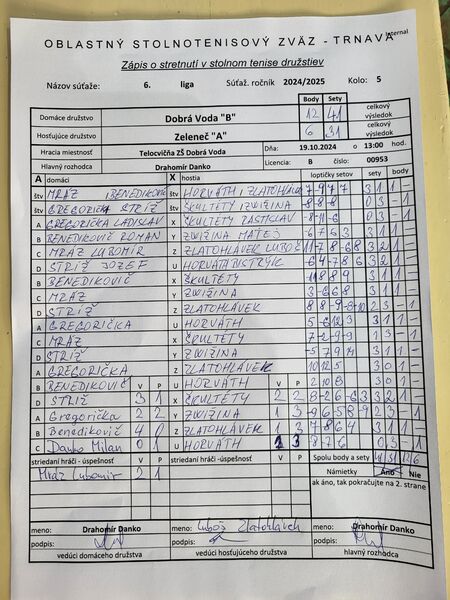 Internal
OBLASTNÝ STOLNOTENISOVÝ ZVÄZ - TRNAVA
Zápis o stretnutí v stolnom tenise družstiev
Názov súťaže: 6. liga Súťaž. ročník 2024/2025 Kolo: 5
Body Sety
Domáce družstvo Dobrá Voda "B" 12 41 celkový výsledok
Hosťujúce družstvo Zeleneč "A" 6 31 celkový výsledok
Hracia miestnosť Telocvičňa ZŠ Dobrá Voda Dňa: 19.10.2024 o 13:00 hod.
Hlavný rozhodca Drahomír Danko Licencia: B číslo: 00953
A domáci X hostia loptičky setov sety body
štv MRÁZ BENEDIKOVIČ štv HORVÁTH ZLATOHLÁVEK 7-9 7 7 3 1 1 -
štv GREGORIČKA STRÍŽ štv ŠKULTÉTY ZVIŽINA -8-8-8 0 3 - 1
A GREGORIČKA LADISLAV X ŠKULTÉTY RASTISLAV -8-11-6 0 3 - 1
B BENEDIKOVIČ ROMAN Y ZVIŽINA MATEJ 3 1 1 -
C MRÁZ ĽUBOMÍR Z ZLATOHLÁVEK ĽUBOŠ 3 2 1 -
D STRÍŽ JOZEF U HORVÁTH 3 2 1 -
B BENEDIKOVIČ X ŠKULTÉTY 3 1 1 -
C MRÁZ Y ZVIŽINA 3 1 1 -
D STRÍŽ Z ZLATOHLÁVEK 2 3 - 1
A GREGORIČKA U HORVÁTH 3 1 1 -
C MRÁZ X ŠKULTÉTY 1 3 - 1
D STRÍŽ Y ZVIŽINA -5 7 9 11 3 1 1 -
A GREGORIČKA Z ZLATOHLÁVEK 10 12 5 3 0 1 -
B BENEDIKOVIČ V P U HORVÁTH V P 2 10 8 3 0 1 -
D STRÍŽ 3 1 X ŠKULTÉTY 2 2 8-2 6-6 3 3 2 1 -
A Gregorička 2 2 Y ZVIŽINA 1 3 2 3 - 1
B Benedikovič 4 0 Z ZLATOHLÁVEK 1 3 3 1 1 -
C Danko Milan 0 1 U HORVÁTH 1 3 -8-7-6 0 3 - 1
striedaní hráči - úspešnosť V P striedaní hráči - úspešnosť V P Spolu body a sety 41 31 12 6
Mráz Ľubomír 2 1 Námietky Áno Nie
ak áno, tak pokračujte na 2. strane
meno: Drahomír Danko meno: Ľuboš Zlatohlávek meno: Drahomír Danko
podpis: podpis: podpis:
vedúci domáceho družstva vedúci hosťujúceho družstva hlavný rozhodca